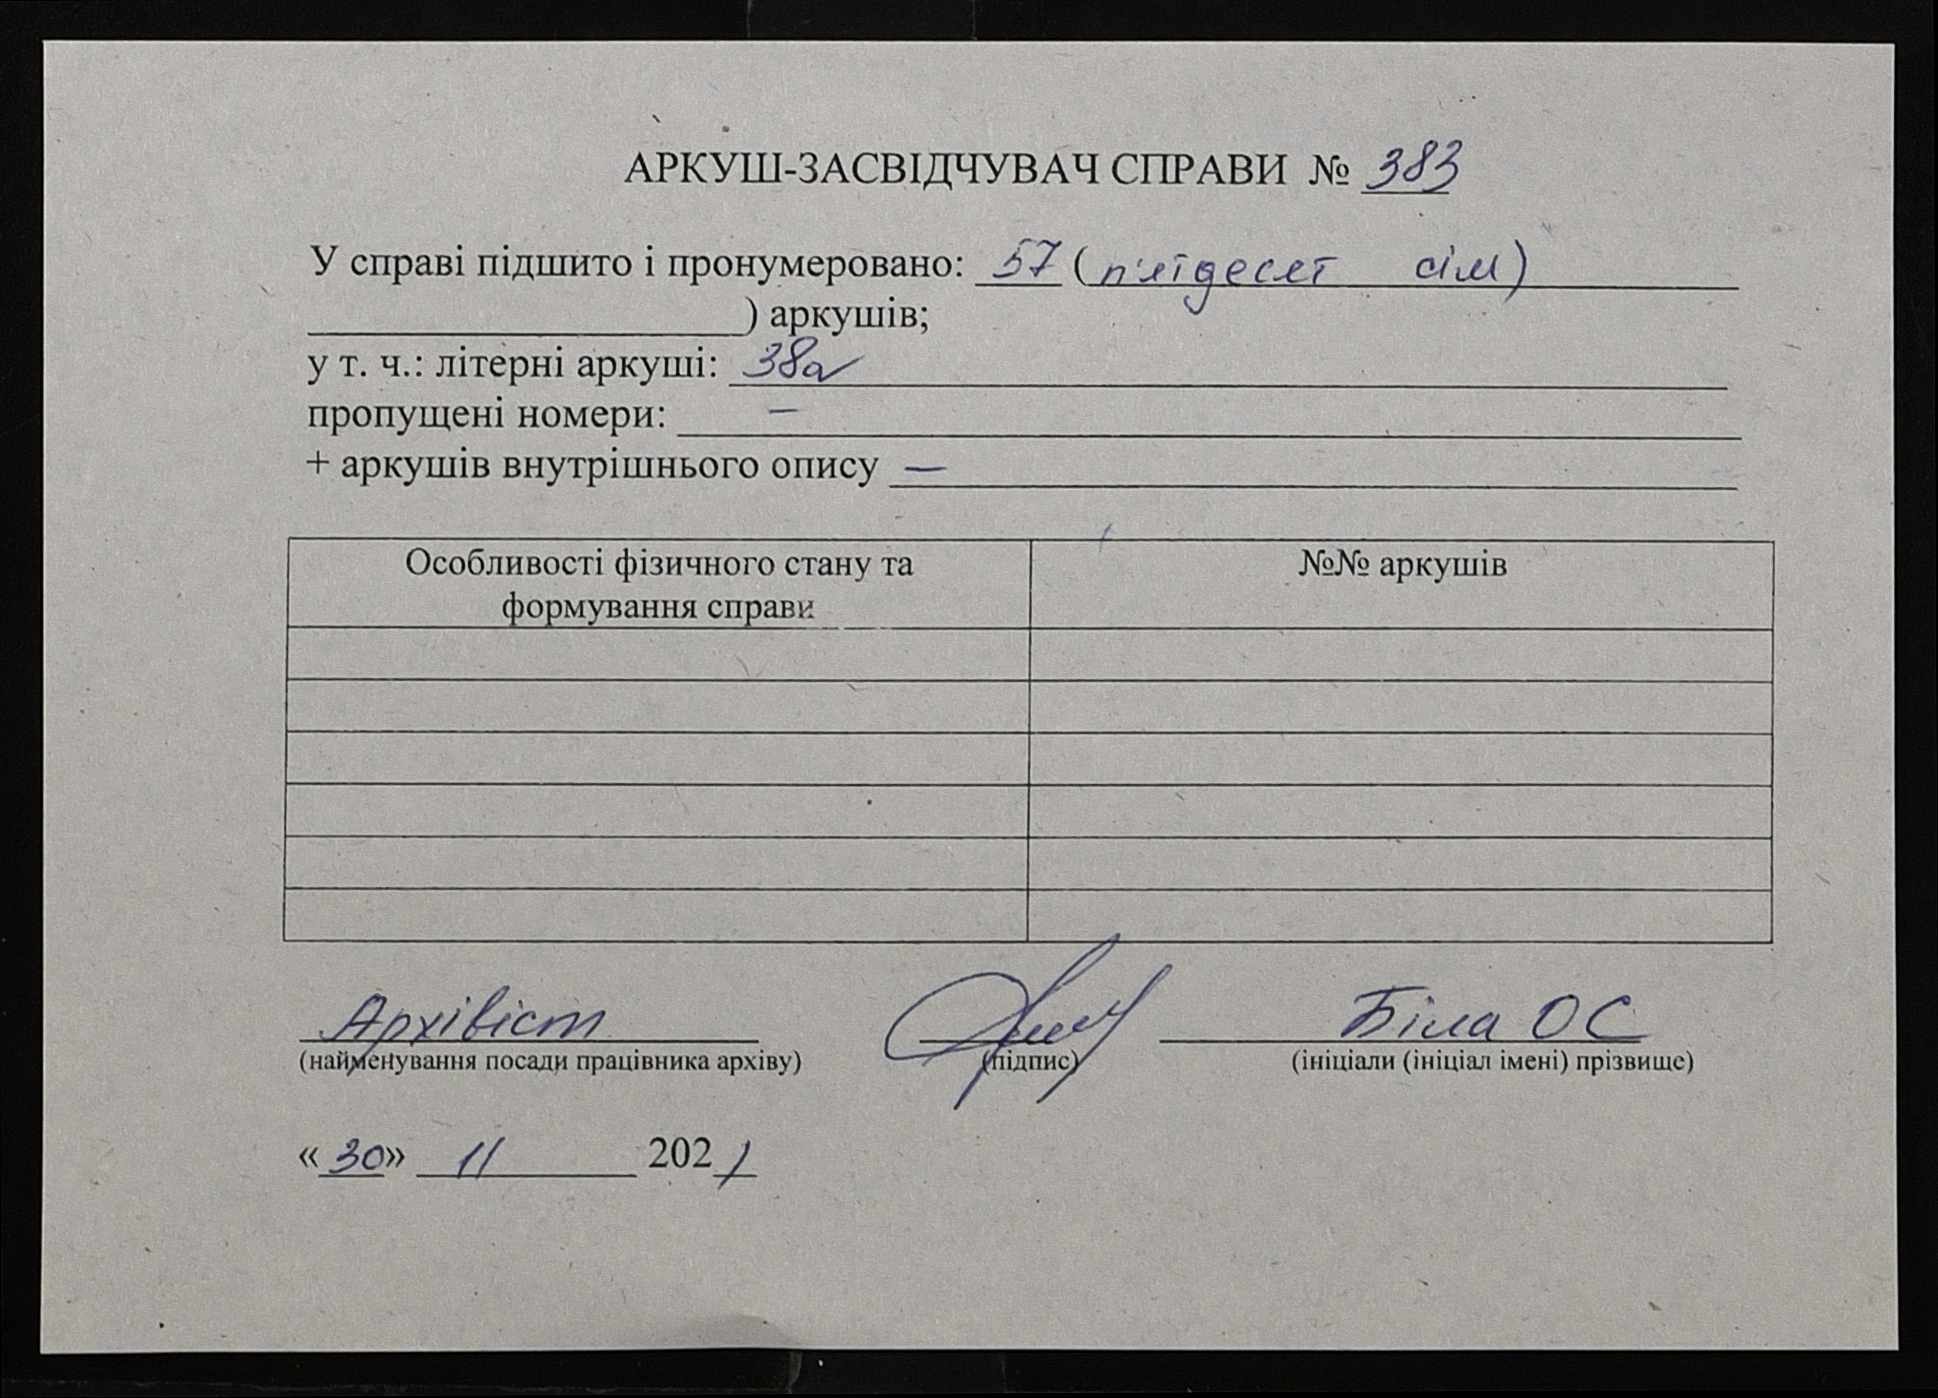 АРКУШ-ЗАСВІДЧУВАЧ СПРАВИ № 383
У справі підшито і пронумеровано: 57 (п'ятдесят сім)
) аркушів;
у т. ч.: літерні аркуші: 38а
пропущені номери: –
+ аркушів внутрішнього опису —
Особливості фізичного стану та
формування справи
№№ аркушів
Архівіст Біла ОС
(найменування посади працівника архіву) (підпис) (ініціали (ініціал імені) прізвище)
«30» 11 2021